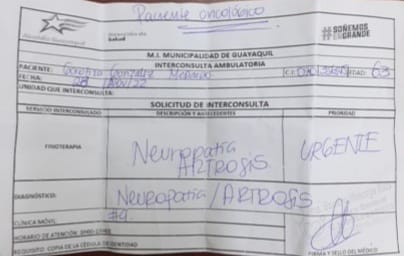 Paciente oncológico
Alcaldía Guayaquil
Dirección de
Salud
#SOÑEMOS
ENGRANDE
M.I. MUNICIPALIDAD DE GUAYAQUIL
INTERCONSULTA AMBULATORIA
PACIENTE: González C.I: EDAD: 63
FECHA:
UNIDAD QUE INTERCONSULTA:
SOLICITUD DE INTERCONSULTA
SERVICIO INTERCONSULTADO DESCRIPCIÓN Y ANTECEDENTES PRIORIDAD
FISIOTERAPIA Neuropatia ARTROSIS URGENTE
DIAGNÓSTICO: Neuropatia / ARTROSIS
CLÍNICA MÓVIL: #9.
HORARIO DE ATENCIÓN:
REQUISITO: COPIA DE LA CÉDULA DE IDENTIDAD FIRMA Y SELLO DEL MÉDICO